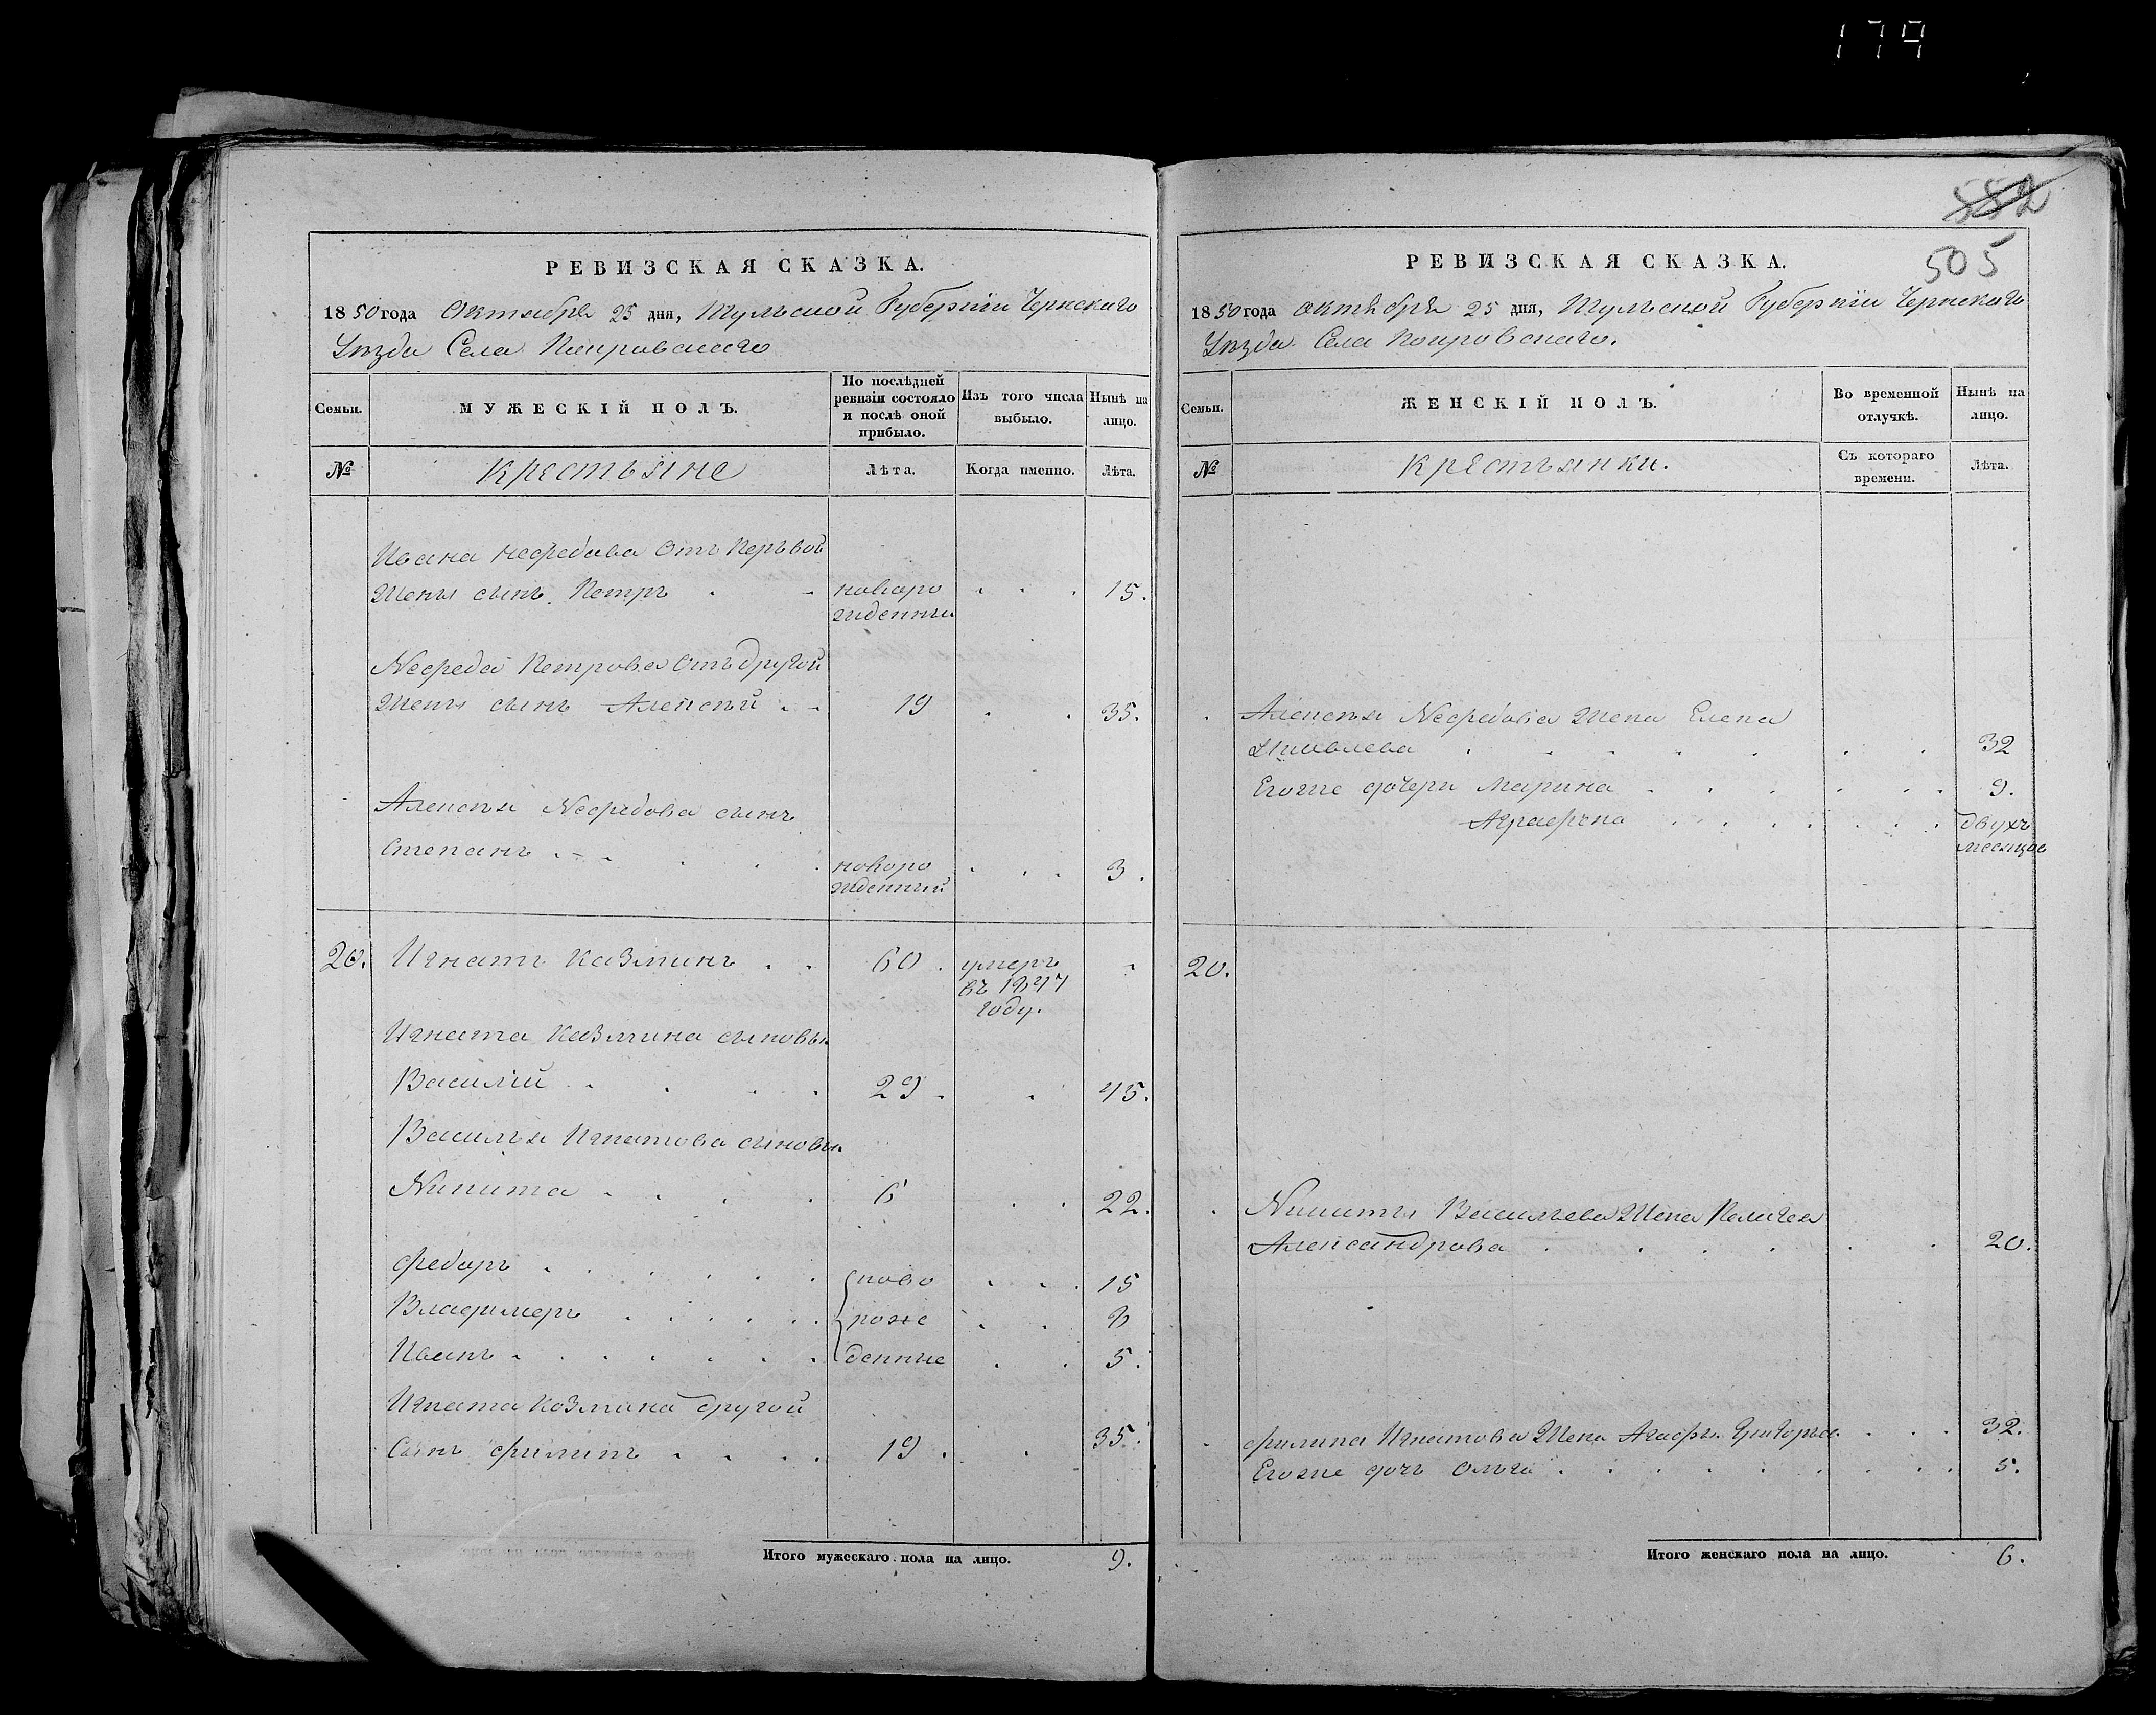 179
582
505
РЕВИЗСКАЯ СКАЗКА.
1850 года Октября 25 дня, Тульской Губернїи Чернскаго
Уѣзда Села Покровскаго
Семьи.
МУЖЕСКІЙ ПОЛЪ.
По послѣдней
ревизіи состояло
и послѣ оной
прибыло.
Изъ того числа
выбыло.
Нынѣ на
лицо.
№
Крестьяне
Лѣта.
Когда именно.
Лѣта.
Ивана Нефедова Отъ Первой
Жены сынъ Петръ
новоро
жденный
15.
Нефеда Петрова Отъ другой
Жены сынъ Алексѣй
19
35.
Алексѣя Нефедова сынъ
Степанъ
новоро
жденный
3.
20.
Игнатъ Казминъ
60.
умеръ
въ 1847
году.
Игната Казмина сыновья
Василїй
29.
45.
Василья Игнатова сыновья
Никита
6
22.
Федоръ
15
Владимеръ
8
Иванъ
5.
ново
рож
денные
Игната Козмина другой
Сынъ Филипъ
19.
35.
Итого мужескаго пола на лицо.
9.
РЕВИЗСКАЯ СКАЗКА.
1850 года октября 25 дня, Тульской Губернїи Чернскаго
Уѣзда Села Покровскаго.
Семьи.
ЖЕНСКІЙ ПОЛЪ.
Во временной
отлучкѣ.
Нынѣ на
лицо.
№
Крестьянки.
Съ котораго
времени.
Лѣта.
Алексѣя Нефедова Жена Елена
Яковлева
32
Егоже дочери Марина
9.
Аграфена
двухъ
месяцов
20.
Никиты Васильева Жена Пелагея
Александрова
20.
Филипа Игнатова Жена Агафья Григорьева
32.
Егоже дочь Ольга
5.
Итого женскаго пола на лицо.
6.